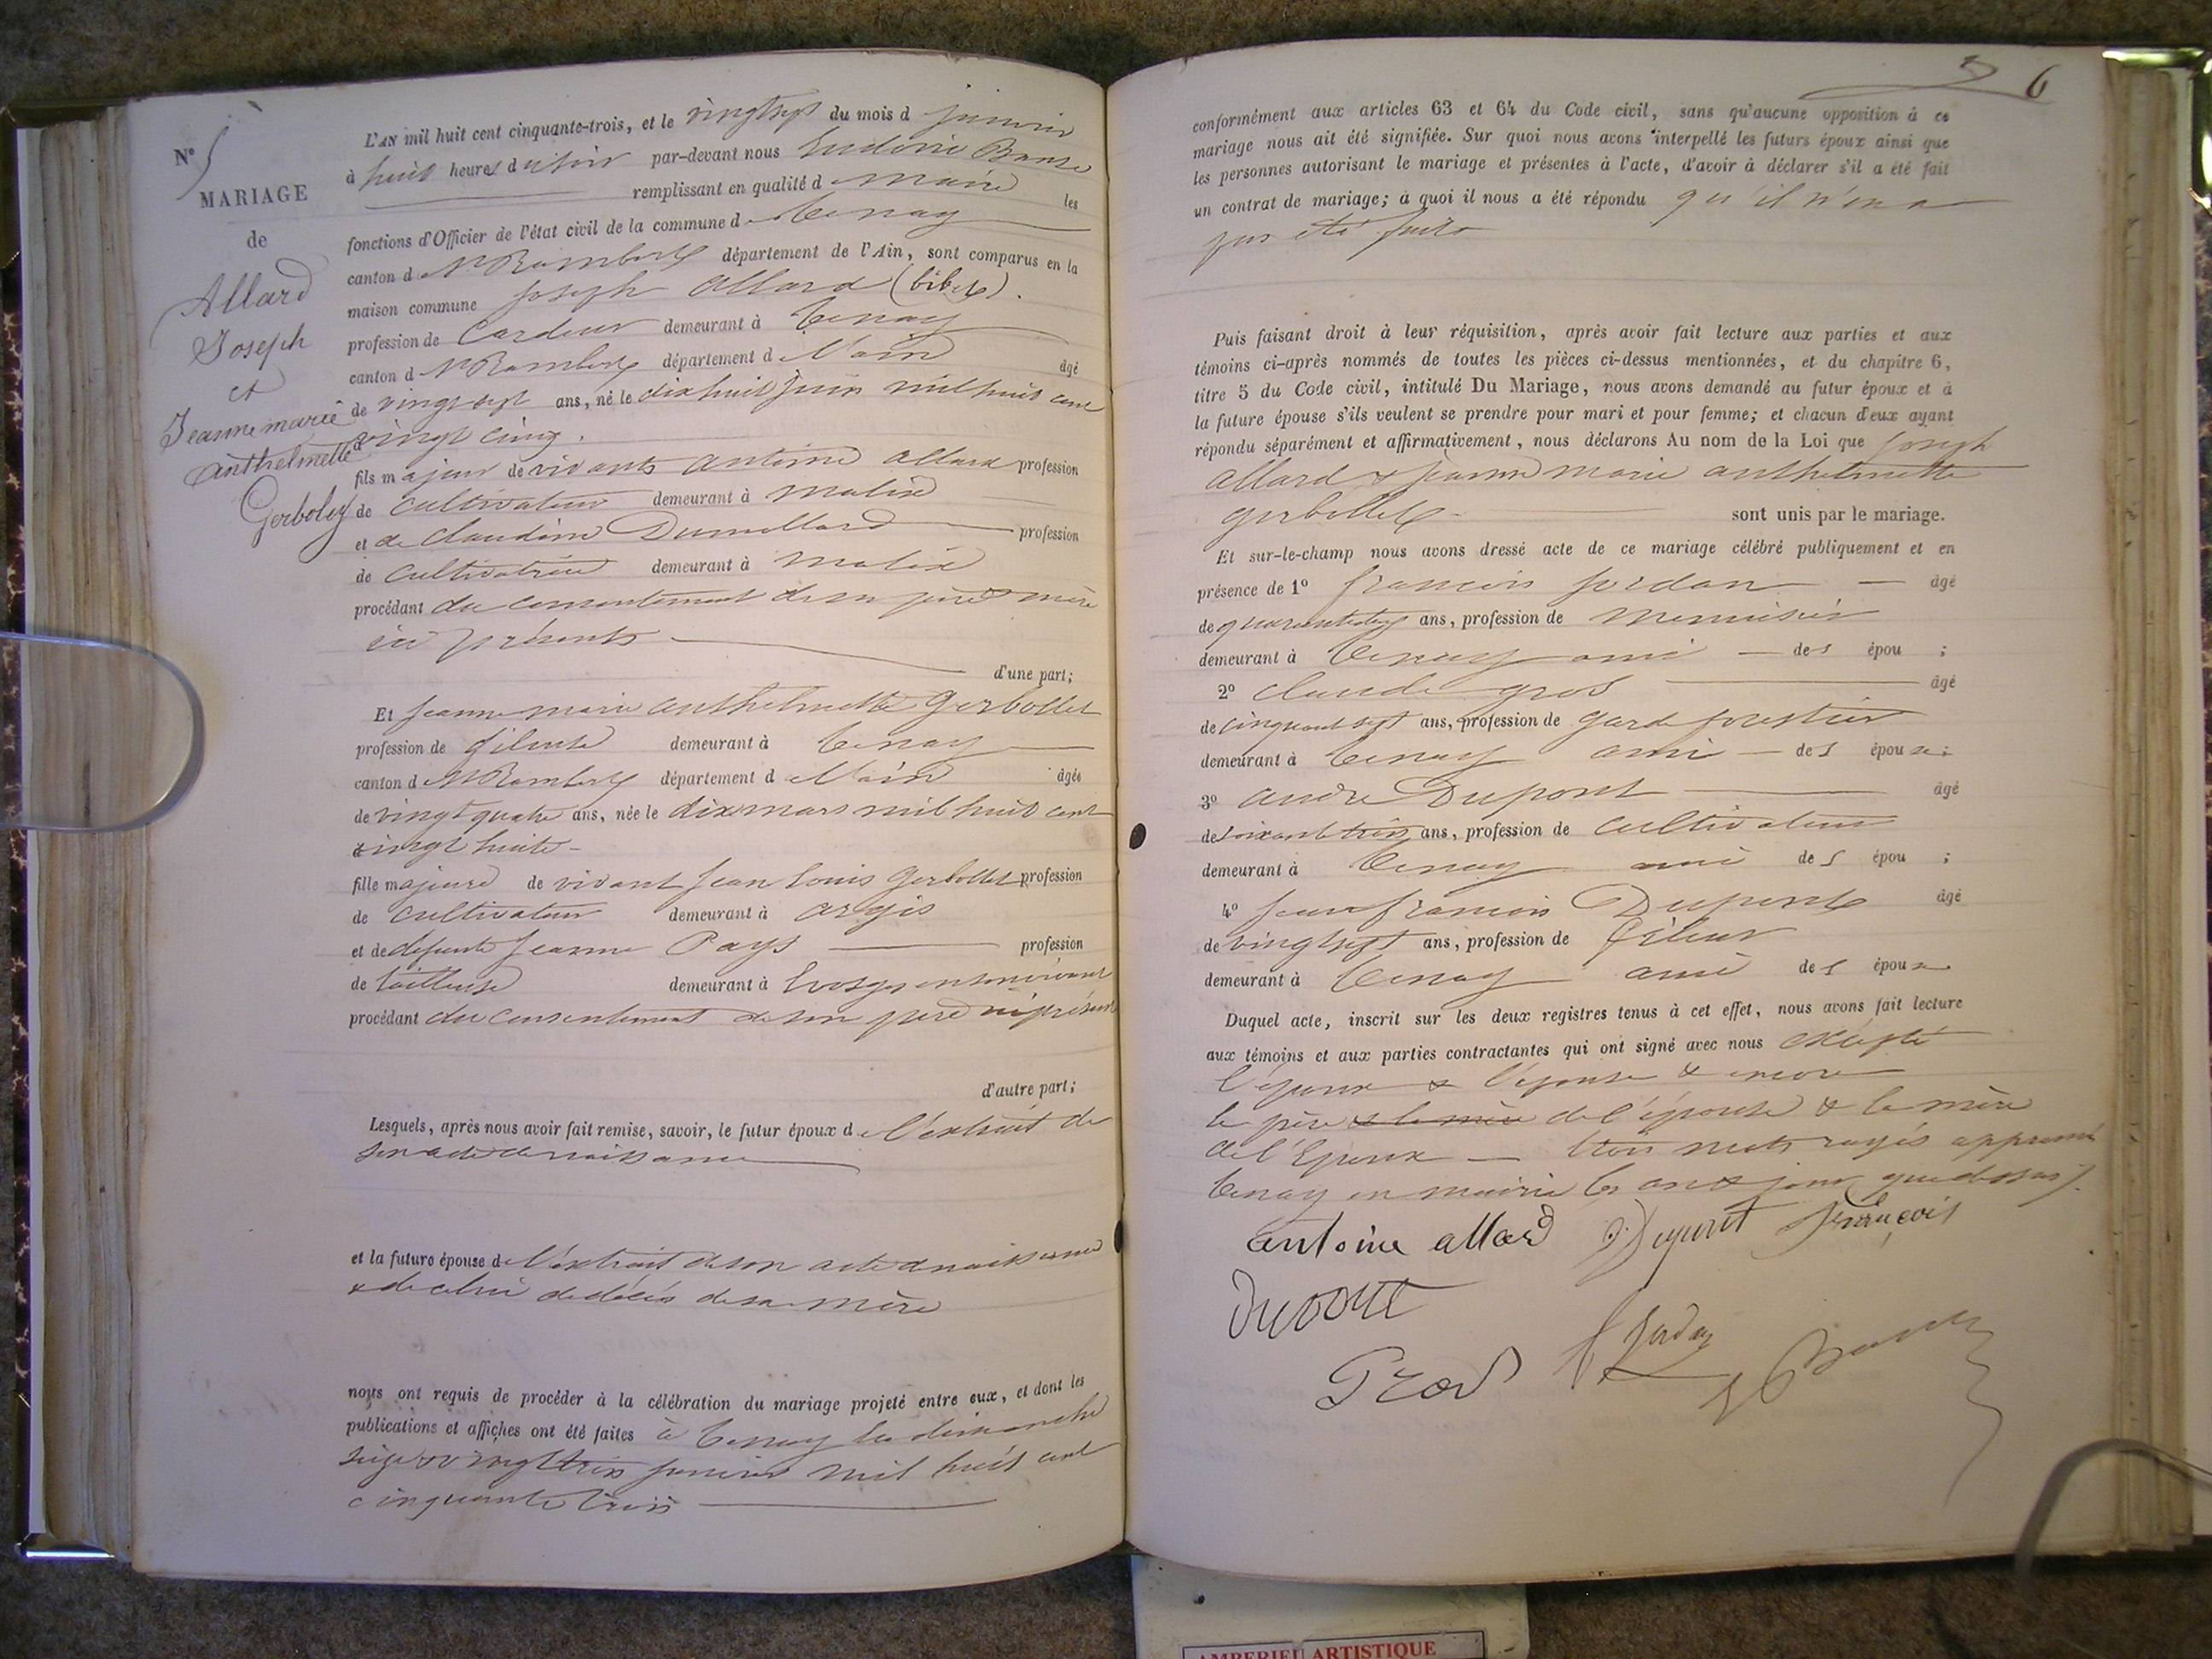 N° 5
MARIAGE
de
Allard
Joseph
et
Jeanne marie
anthelmette
Gerbollet
L'AN mil huit cent cinquante-trois, et le vingt sept du mois d janvier
à huit heures du soir par-devant nous
remplissant en qualité de maire les
fonctions d'Officier de l'état civil de la commune de Tenay
canton de St Rambert département de l'Ain, sont comparus en la
maison commune Joseph Allard (bibet).
profession de Cardeur demeurant à Tenay
canton d St Rambert département de l'ain âgé
de vingt sept ans, né le dix huit juin mil huit cent
vingt cinq.
fils majeur de vivants antoine allard profession
de cultivateur demeurant à malix
et de Claudine Dumollard profession
de cultivatrice demeurant à malix
procédant du consentement de ses père & mère
ici présents
d'une part;
Et jeanne marie anthelmette Gerbollet
profession de fileuse demeurant à Tenay
canton d St Rambert département de l'ain âgée
de vingt quatre ans, née le dix mars mil huit cent
vingt huit
fille majeure de vivant jean Louis Gerbollet profession
de cultivateur demeurant à argis
et de defunte Jeanne Pays profession
de tailleuse demeurant à Evosges en son vivant
procédant du consentement de son père ici présent
d'autre part;
Lesquels, après nous avoir fait remise, savoir, le futur époux de l'extrait de
son acte de naissance
et la future épouse de l'extrait de son acte de naissance
& de celui de décès de sa mère
nous ont requis de procéder à la célébration du mariage projeté entre eux, et dont les
publications et affiches ont été faites à Tenay les dimanche
seize & vingt trois janvier mil huit cent
cinquante trois
6
conformément aux articles 63 et 64 du Code civil, sans qu'aucune opposition à ce
mariage nous ait été signifiée. Sur quoi nous avons interpellé les futurs époux ainsi que
les personnes autorisant le mariage et présentes à l'acte, d'avoir à déclarer s'il a été fait
un contrat de mariage; à quoi il nous a été répondu qu'il n'en a
pas été fait
Puis faisant droit à leur réquisition, après avoir fait lecture aux parties et aux
témoins ci-après nommés de toutes les pièces ci-dessus mentionnées, et du chapitre 6,
titre 5 du Code civil, intitulé Du Mariage, nous avons demandé au futur époux et à
la future épouse s'ils veulent se prendre pour mari et pour femme; et chacun d'eux ayant
répondu séparément et affirmativement, nous déclarons Au nom de la Loi que joseph
allard & jeanne marie anthelmette
gerbollet sont unis par le mariage.
Et sur-le-champ nous avons dressé acte de ce mariage célébré publiquement et en
présence de 1° francois jordan âgé
de ans, profession de menuisier
demeurant à Tenay ami des épou ;
2° claude gros âgé
de cinquante sept ans, profession de gard forestier
demeurant à Tenay ami des époux;
3° andre Dupont âgé
de soixante trois ans, profession de cultivateur
demeurant à Tenay ami des épou ;
4° jean francois Dupont âgé
de vingt sept ans, profession de fileur
demeurant à Tenay ami des époux
Duquel acte, inscrit sur les deux registres tenus à cet effet, nous avons fait lecture
aux témoins et aux parties contractantes qui ont signé avec nous excepté
l'époux & l'épouse & encore
le père & la mère de l'épouse & la mère
de l'époux trois mots rayés approuvé
Tenay en mairie les an & jour que dessus
antoine allard Dupont françois
Dupont
Gros Jordan
AMBERIEU ARTISTIQUE